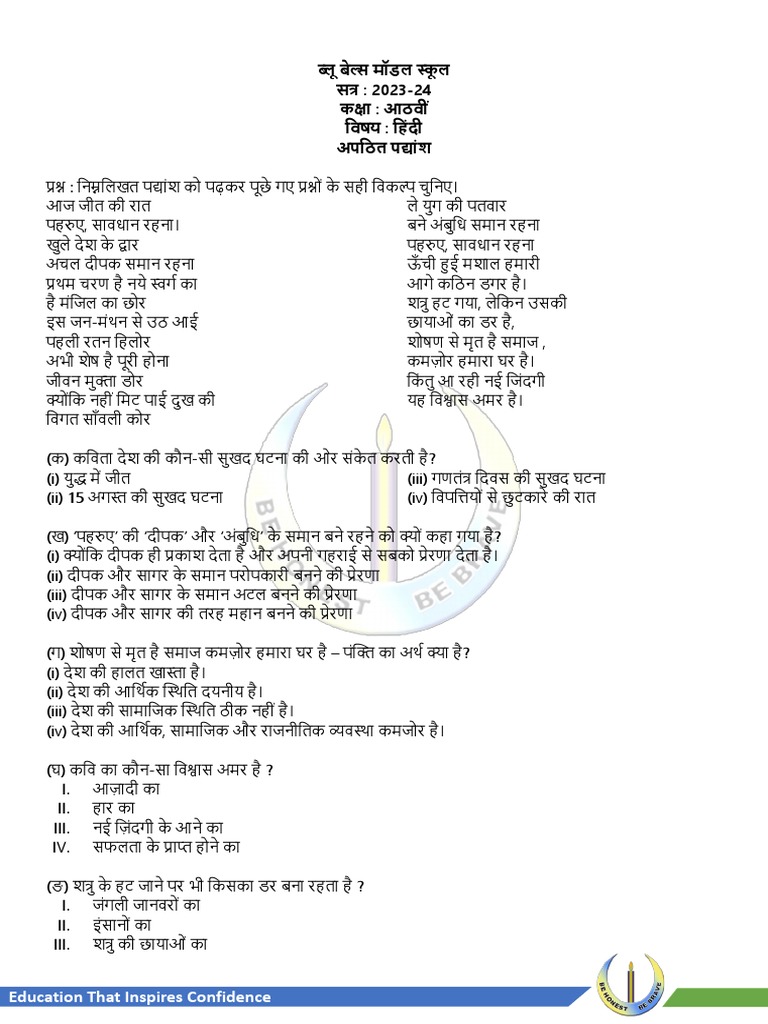 ब्लू बेल्स मॉडल स्कूल
सत्र : 2023-24
कक्षा : आठवीं
विषय : हिंदी
अपठित पद्यांश
प्रश्न : निम्नलिखत पद्यांश को पढ़कर पूछे गए प्रश्नों के सही विकल्प चुनिए।
आज जीत की रात
पहरुए, सावधान रहना।
खुले देश के द्वार
अचल दीपक समान रहना
प्रथम चरण है नये स्वर्ग का
है मंजिल का छोर
इस जन-मंथन से उठ आई
पहली रतन हिलोर
अभी शेष है पूरी होना
जीवन मुक्ता डोर
क्योंकि नहीं मिट पाई दुख की
विगत साँवली कोर
ले युग की पतवार
बने अंबुधि समान रहना
पहरुए, सावधान रहना
ऊँची हुई मशाल हमारी
आगे कठिन डगर है।
शत्रु हट गया, लेकिन उसकी
छायाओं का डर है,
शोषण से मृत है समाज ,
कमज़ोर हमारा घर है।
किंतु आ रही नई जिंदगी
यह विश्वास अमर है।
(क) कविता देश की कौन-सी सुखद घटना की ओर संकेत करती है?
(i) युद्ध में जीत (iii) गणतंत्र दिवस की सुखद घटना
(ii) 15 अगस्त की सुखद घटना (iv) विपत्तियों से छुटकारे की रात
(ख) ‘पहरुए’ की ‘दीपक’ और ‘अंबुधि’ के समान बने रहने को क्यों कहा गया है?
(i) क्योंकि दीपक ही प्रकाश देता है और अपनी गहराई से सबको प्रेरणा देता है।
(ii) दीपक और सागर के समान परोपकारी बनने की प्रेरणा
(iii) दीपक और सागर के समान अटल बनने की प्रेरणा
(iv) दीपक और सागर की तरह महान बनने की प्रेरणा
(ग) शोषण से मृत है समाज कमज़ोर हमारा घर है – पंक्ति का अर्थ क्या है?
(i) देश की हालत खास्ता है।
(ii) देश की आर्थिक स्थिति दयनीय है।
(iii) देश की सामाजिक स्थिति ठीक नहीं है।
(iv) देश की आर्थिक, सामाजिक और राजनीतिक व्यवस्था कमजोर है।
(घ) कवि का कौन-सा विश्वास अमर है ?
I. आज़ादी का
II. हार का
III. नई ज़िंदगी के आने का
IV. सफलता के प्राप्त होने का
(ङ) शत्रु के हट जाने पर भी किसका डर बना रहता है ?
I. जंगली जानवरों का
II. इंसानों का
III. शत्रु की छायाओं का
BE HONEST BE BRAVE
Education That Inspires Confidence
BE HONEST BE BRAVE